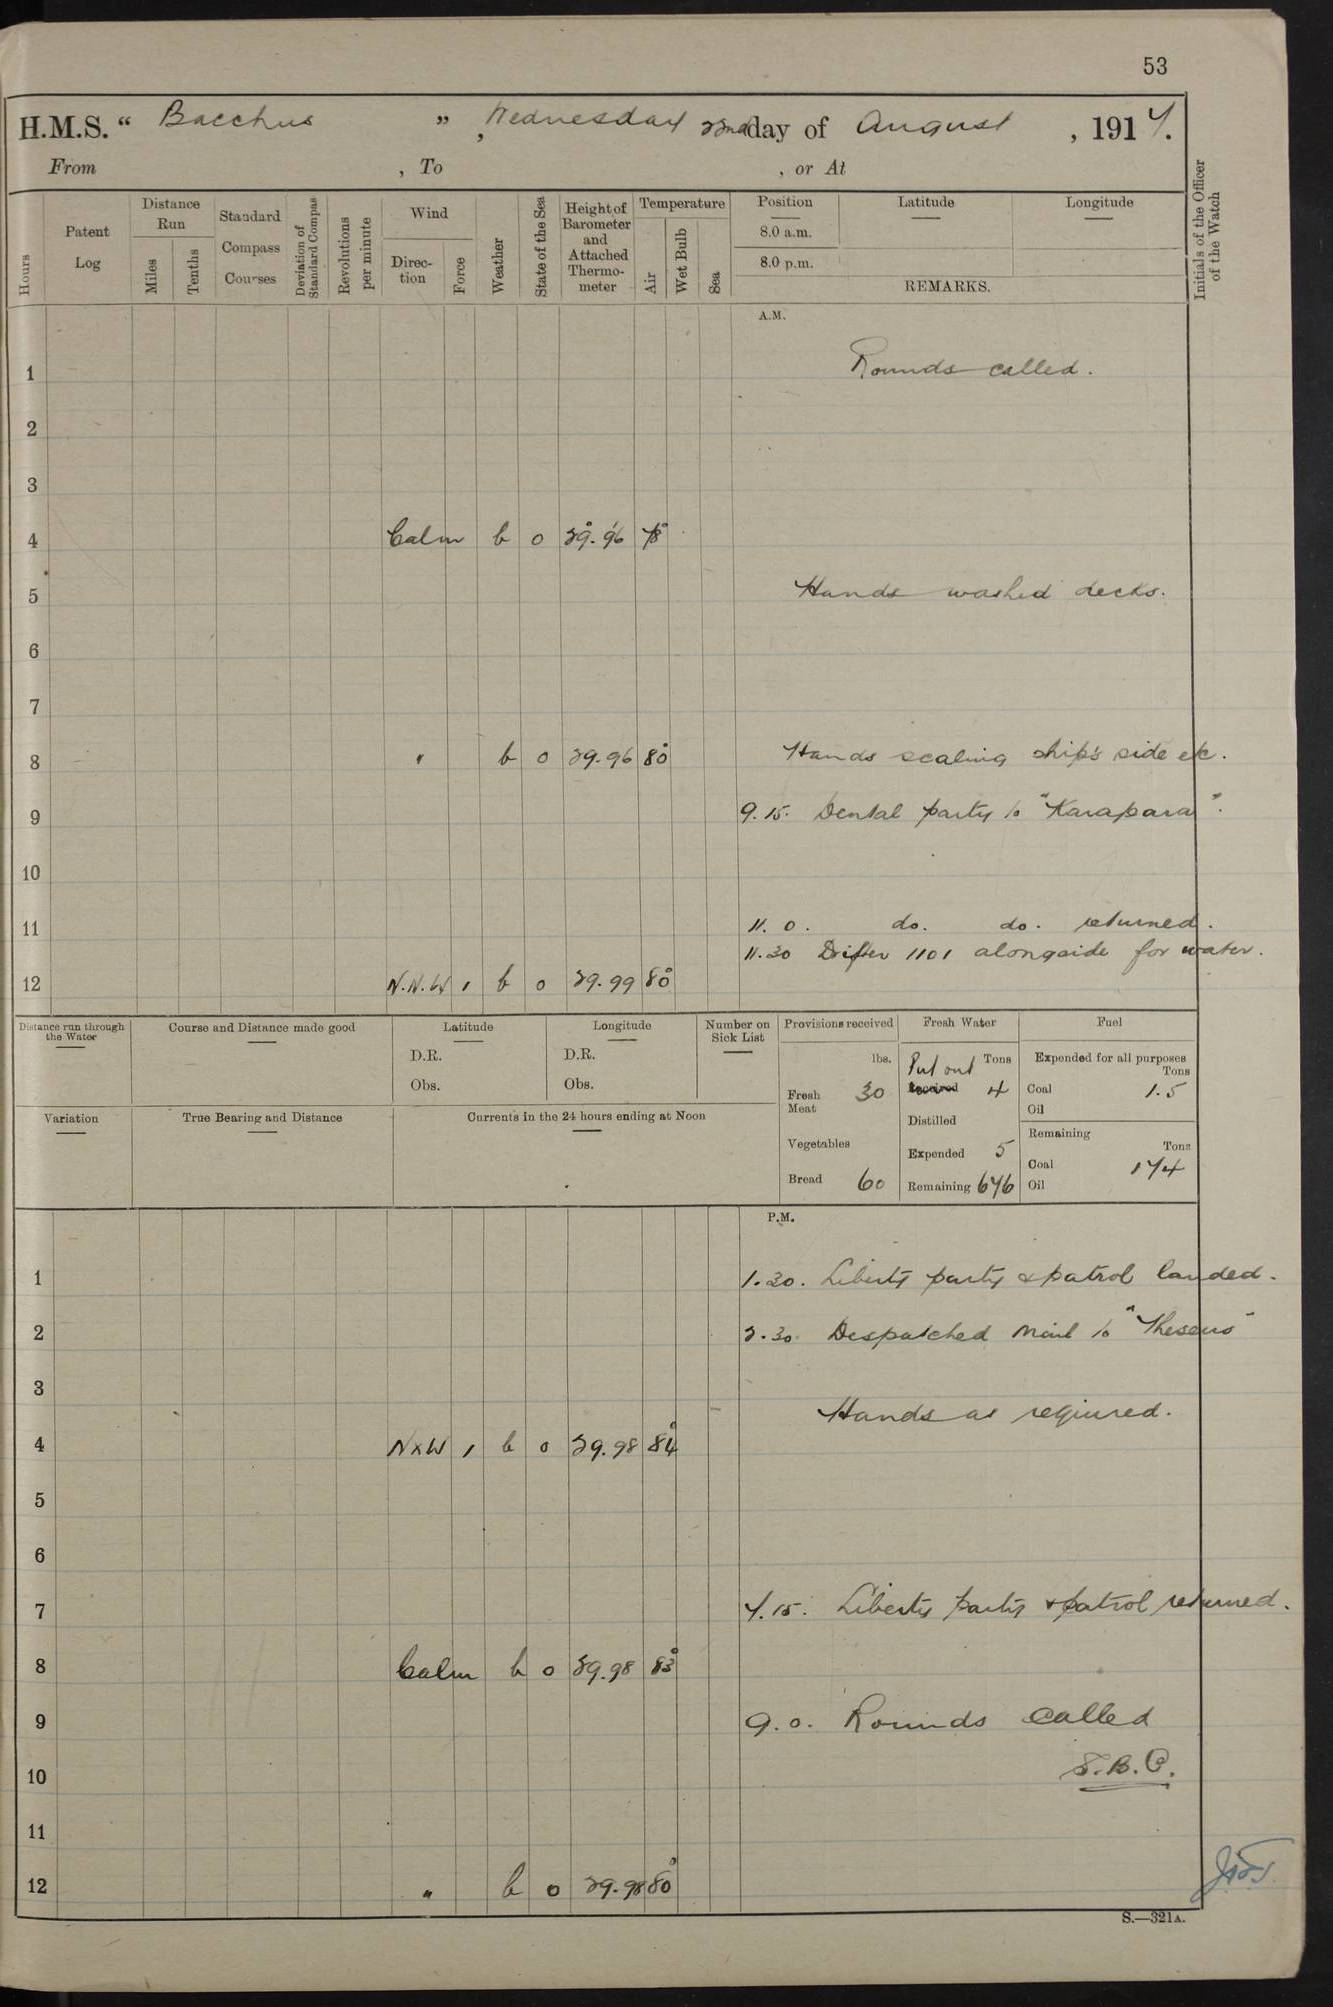 53
H.M.S. “ Bacchus ” , Wednesday 22nd day of August , 1917.
From , To , or At
Hours
Patent Log
Distance Run
Miles
Tenths
Standard Compass Courses
Deviation of Standard Compass
Revolutions per minute
Wind
Direction
Force
Weather
State of the Sea
Height of Barometer and Attached Thermometer
Temperature
Air
Wet Bulb
Sea
Position
8.0 a.m.
8.0 p.m.
Latitude
Longitude
REMARKS.
Initials of the Officer of the Watch
A.M.
1 Rounds called.
2
3
4 Calm b 0 29.96 78°
5 Hands washed decks.
6
7
8 " b 0 29.96 80° Hands scaling ship's side etc.
9 9.15. Dental party to "Karapara".
10
11 11. 0. do. do. returned.
11.30 Drifter 1101 alongside for water.
12 N.N.W 1 b 0 29.99 80°
Distance run through the Water
Course and Distance made good
Latitude
D.R.
Obs.
Longitude
D.R.
Obs.
Number on Sick List
Variation
True Bearing and Distance
Currents in the 24 hours ending at Noon
Provisions received
lbs.
Fresh Meat 30
Vegetables
Bread 60
Fresh Water
Put out Tons
Received 4
Distilled
Expended 5
Remaining 676
Fuel
Expended for all purposes
Tons
Coal 1.5
Oil
Remaining
Tons
Coal 174
Oil
P.M.
1 1.30. Liberty party & patrol landed.
2 2.30. Despatched mail to "Theseus"
3 Hands as reqiured.
4 NxW 1 b 0 29.98 84°
5
6
7 7.15. Liberty party & patrol returned.
8 Calm b 0 29.98 83°
9 9.0. Rounds called
10 S.B.C.
11
12 " b 0 29.98 80°
S.—321A.